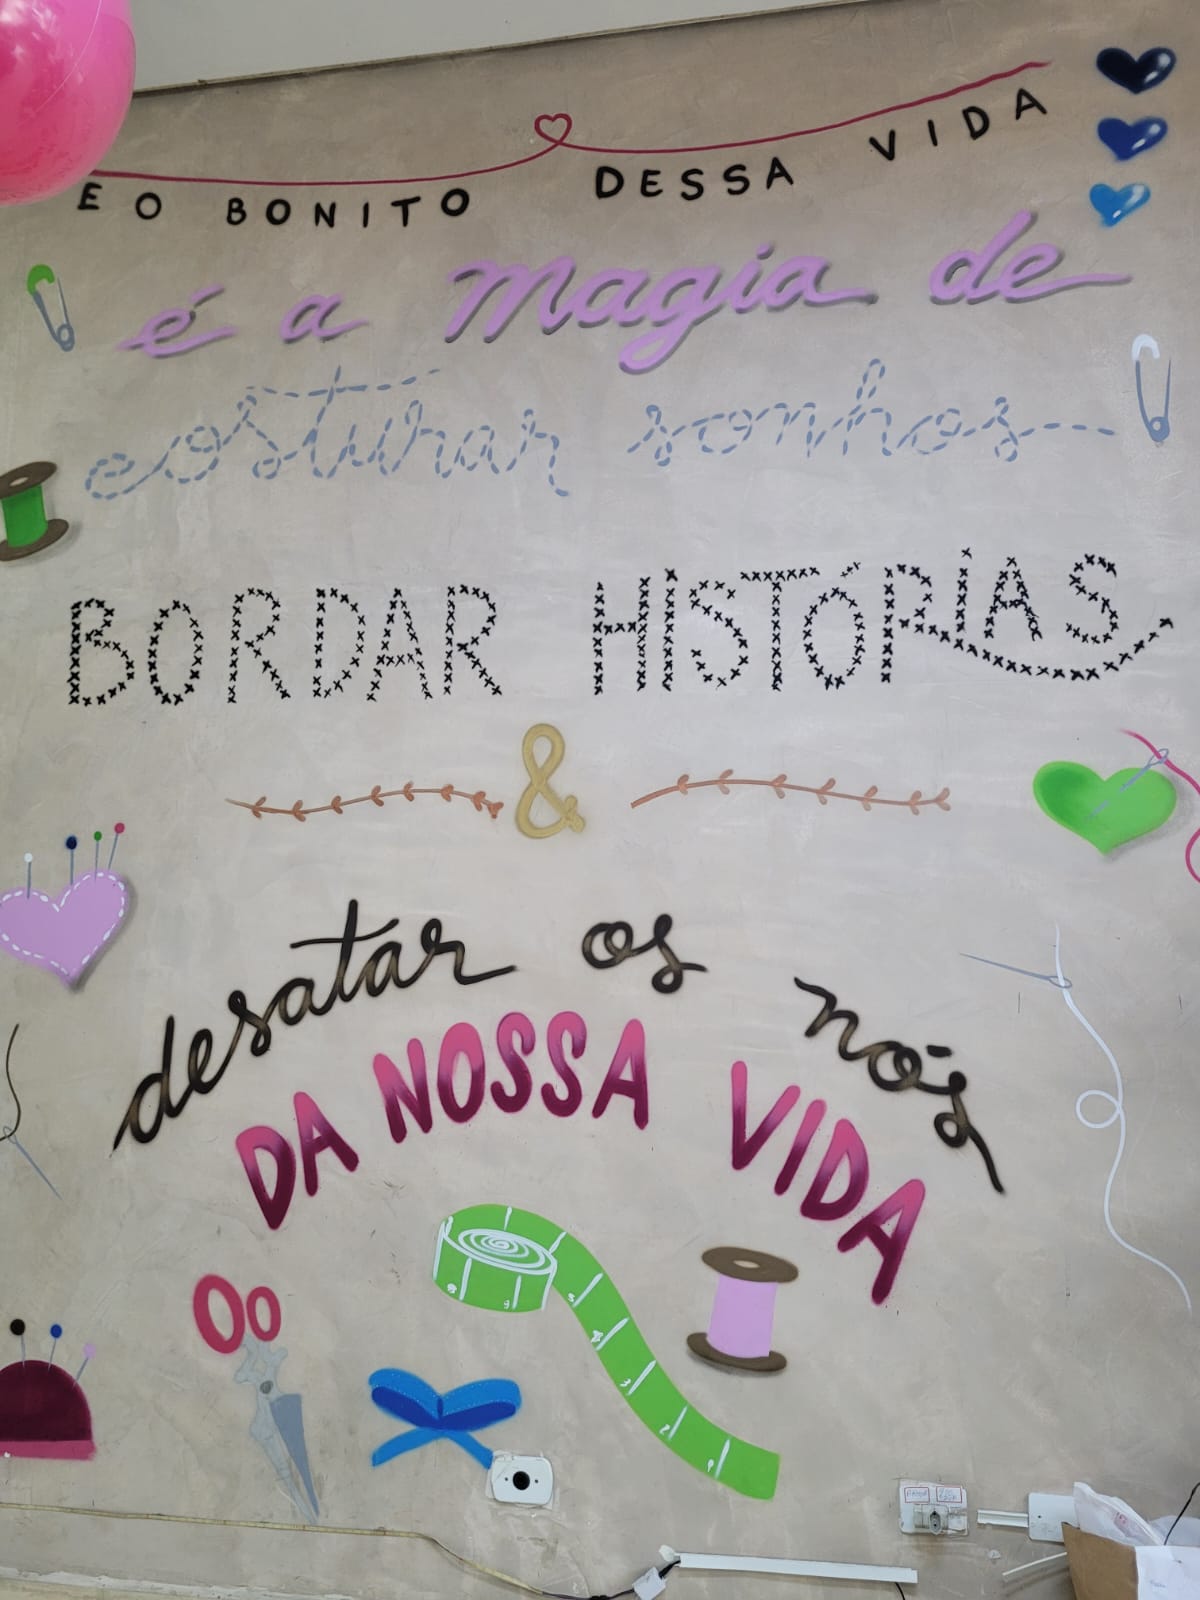 E O BONITO DESSA VIDA
é a magia de
costurar sonhos
BORDAR HISTÓRIAS
&
desatar os nós
DA NOSSA VIDA